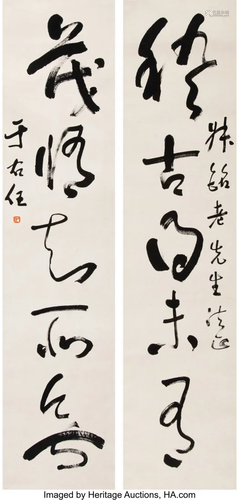 稽古得未有
老先生法正
茂悟知所
于右任
Imaged by Heritage Auctions, HA.com